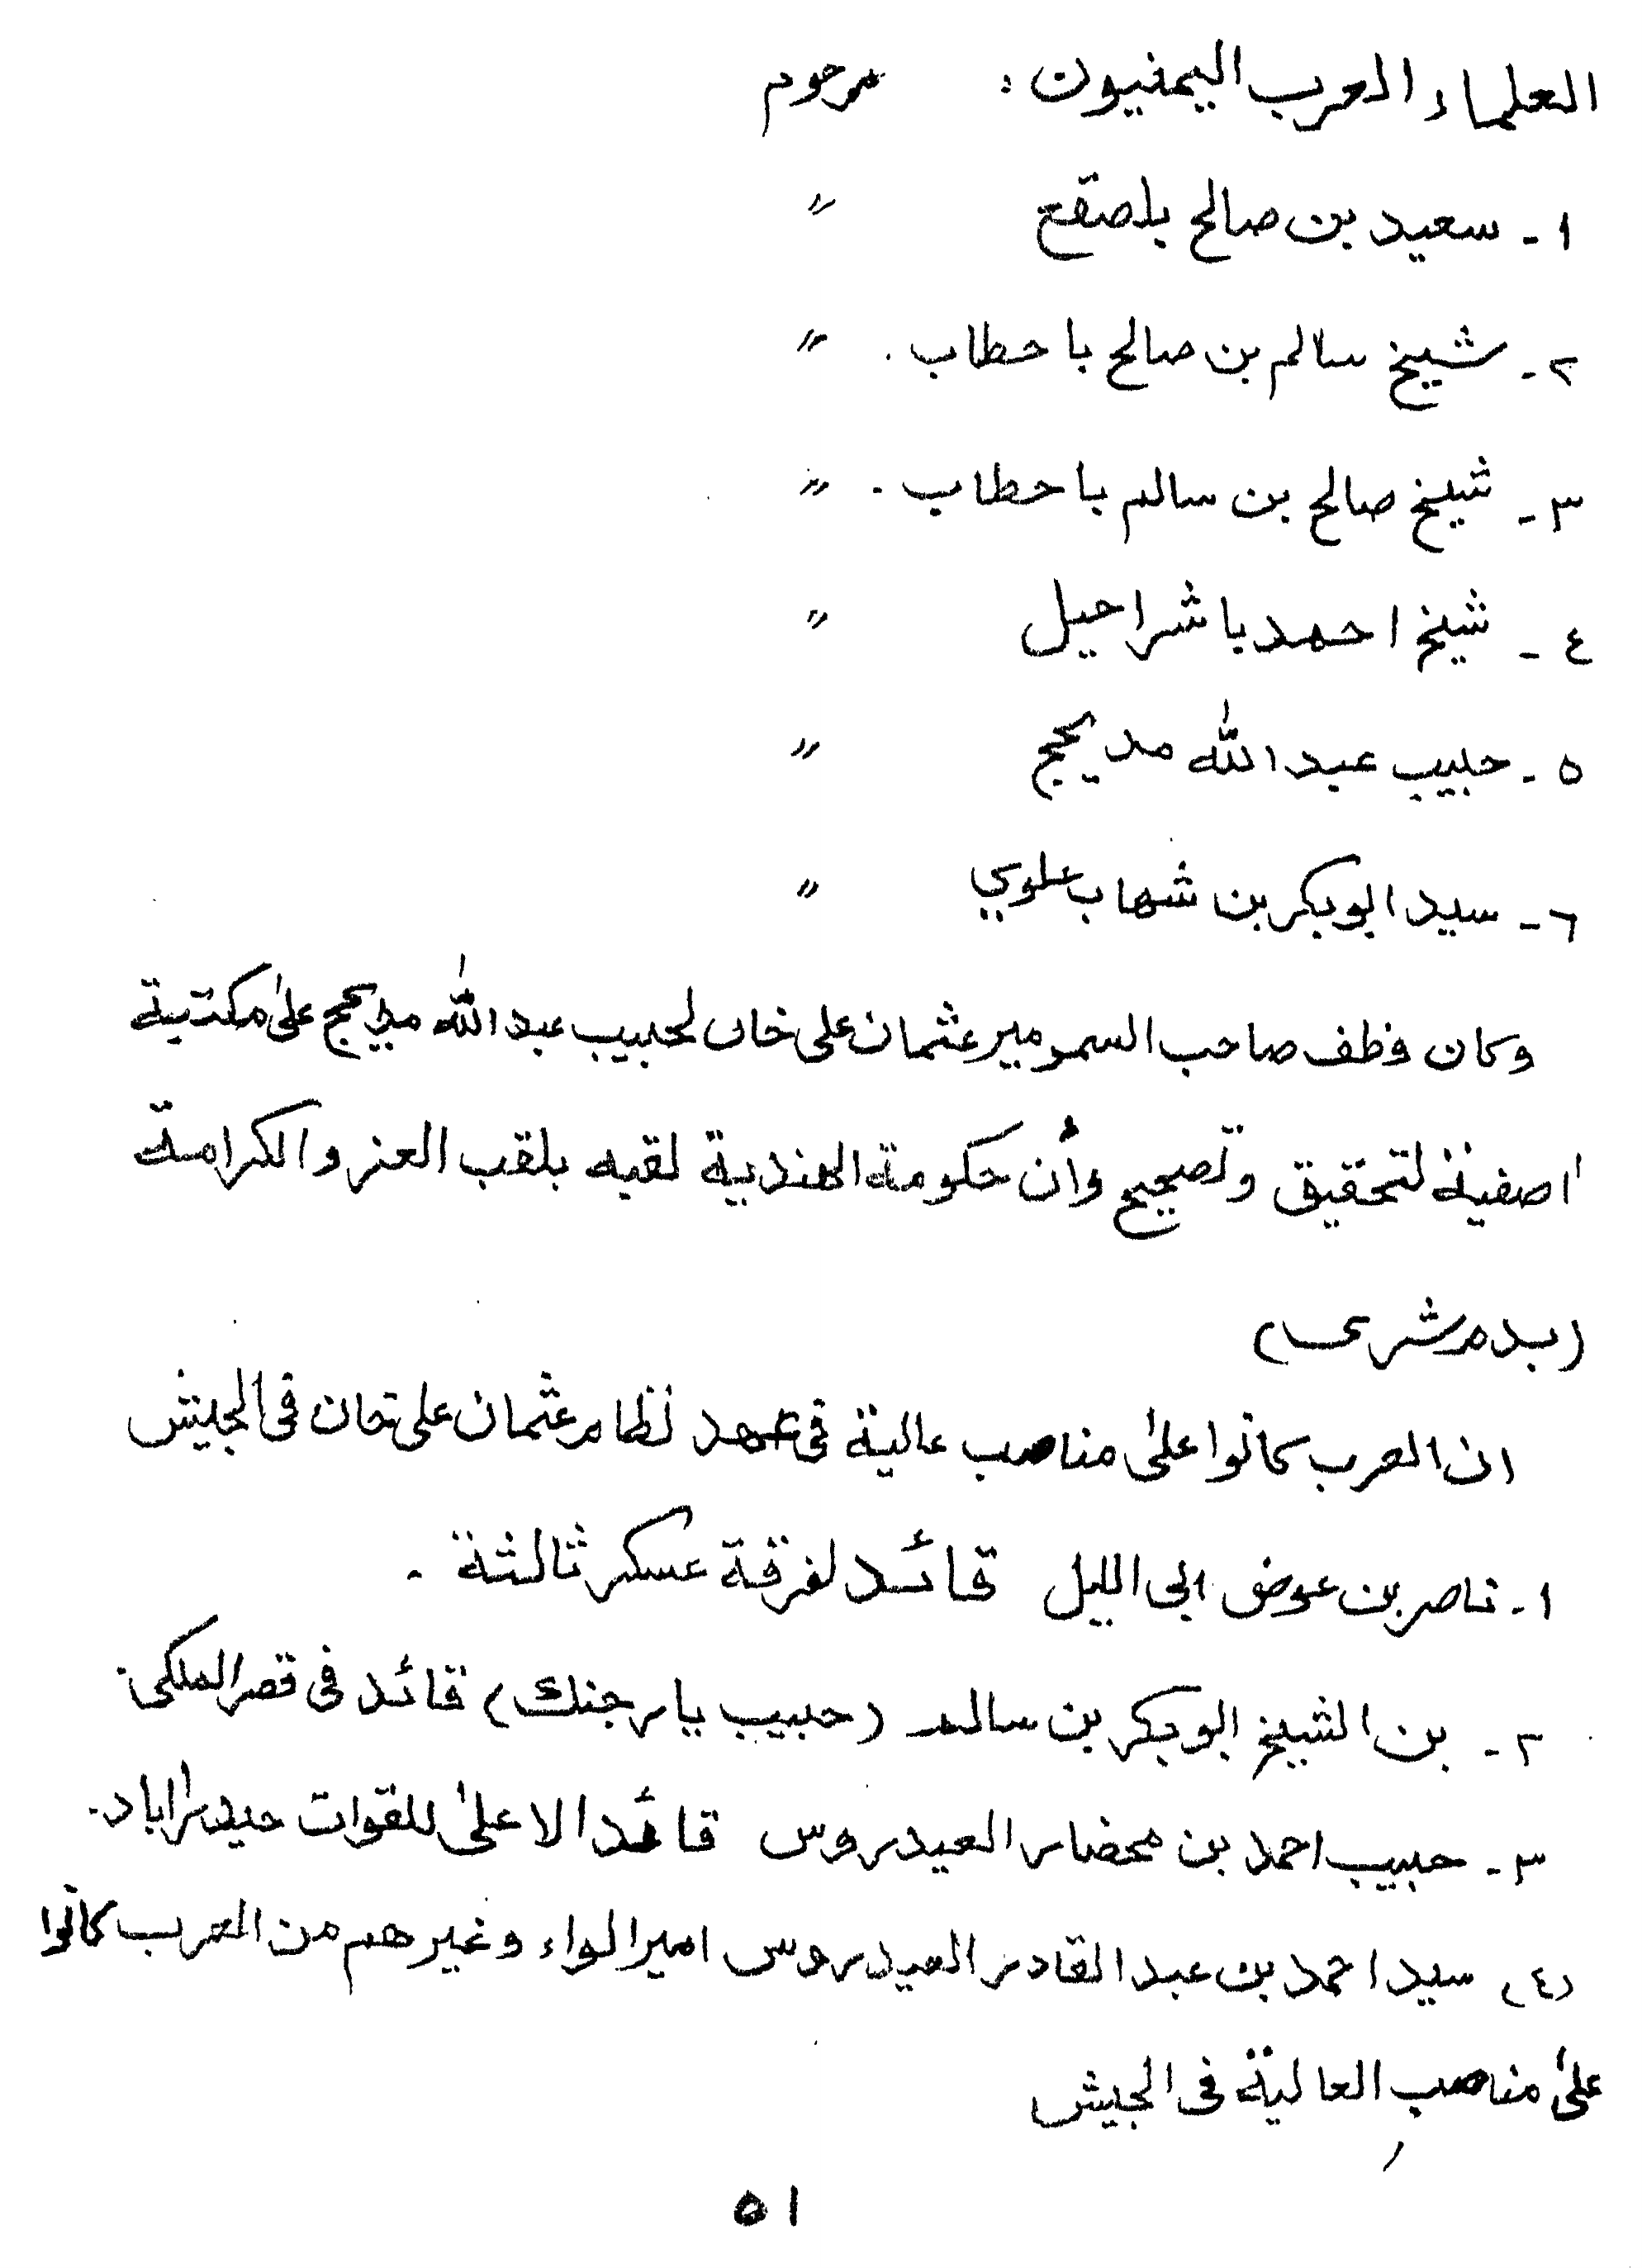 العلماء العرب اليمنيون : مرحوم
١- سعيد بن صالح بلصقع "
٢- شيخ سالم بن صالح با حطاب . "
٣- شيخ صالح بن سالم با حطاب . "
٤- شيخ احمد با شراحيل "
٥- حبيب عبد الله مديحج "
٦- سيد ابوبكر بن شهاب علوي "
وكان وظف صاحب السمو مير عثمان على خان لحبيب عبد الله مديحج على مكتبة
اصفية لتحقيق وتصحيح وأن حكومة الهندية لقبه بلقب العز والكرامة
(بدم شرى)
ان العرب كانوا على مناصب عالية فى عهد نظام عثمان على خان فى الجيش
١- ناصر بن عوض ابى الليل قائد لفرقة عسكر ثالثة .
٢- بن الشيخ ابوبكر بن سالم (حبيب يار جنك) قائد فى قصر الملكى .
٣- حبيب احمد بن محضار العيدروس قائد الاعلى للقوات حيدراباد .
(٤) سيد احمد بن عبد القادر العيدروس امير الواء وغيرهم من العرب كانوا
على مناصب العالية فى الجيش
٥١